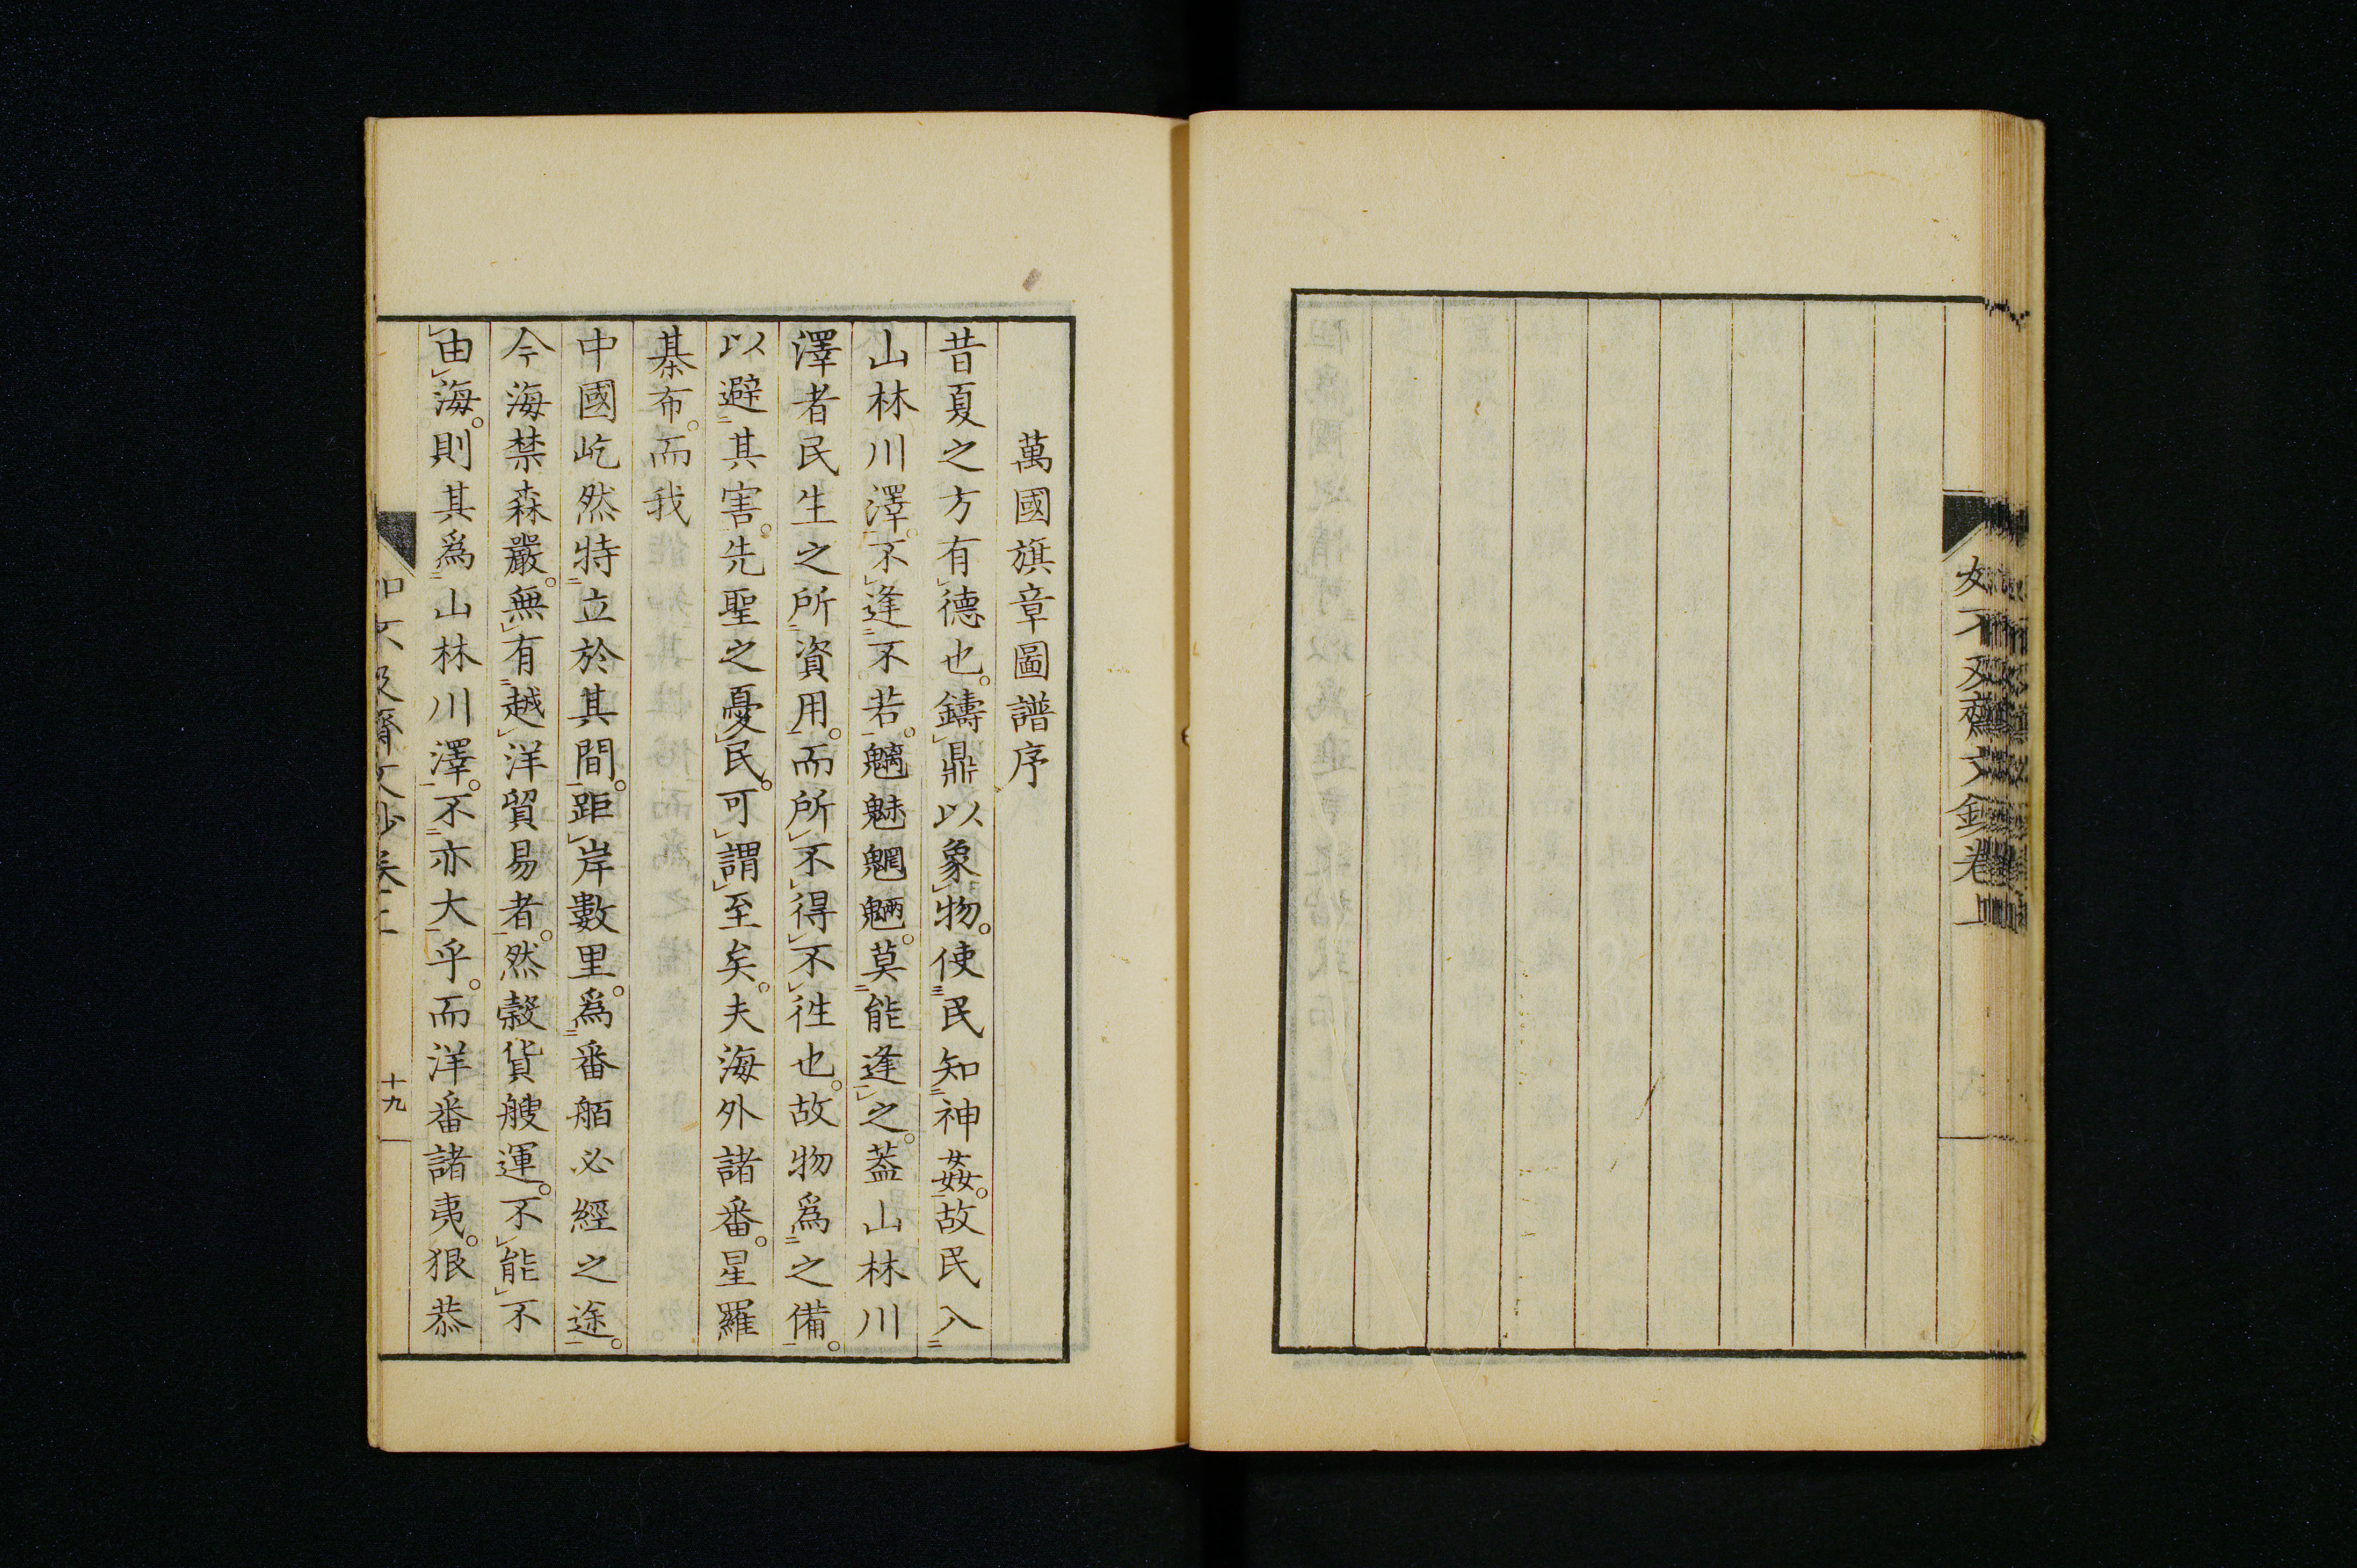 如不及齋文鈔卷上
萬國旗章圖譜序
昔夏之方有德也。鑄鼎以象物。使民知神姦。故民入
山林川澤。不逢不若。魑魅魍魎。莫能逢之。蓋山林川
澤者民生之所資用。而所不得不徃也。故物爲之備。
以避其害。先聖之憂民。可謂至矣。夫海外諸番。星羅
棊布。而我
中國屹然特立於其間。距岸數里。爲番舶必經之途。
今海禁森嚴。無有越洋貿易者。然糓貨艘運。不能不
由海。則其爲山林川澤。不亦大乎。而洋番諸夷。狠恭
如不及齋文鈔卷上
十九